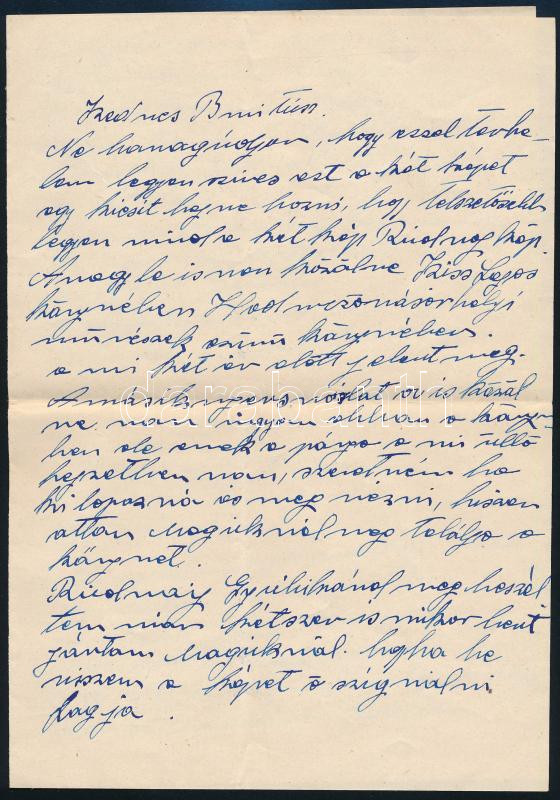 Kedves B
Ne haragudjon, hogy ezzel terhe-
lem legyen szives ezt a két képet
egy kicsit hozni, hogy tetszetősebb
legyen mind a két kép Rudnay kép.
A nagy le is van közölve Kiss Lajos
könyvében Hodmezővásárhelyi
művészek című könyvében.
a mi két év előtt jelent meg.
A másik nyers vázlat az is közöl
ve van ugyan abban a köny-
ben de ennek a párja a mi ülő
helyzetben van, szeretném ha
ki lapozná és meg nézni, hiszen
ottan Maguknál meg találja a
könyvet.
Rudnay Gyulánénál meg beszél
tem már kétszer is mikor bent
jártam Maguknál. hogha be
viszem a képet ő szignálni
fogja.
darabanth